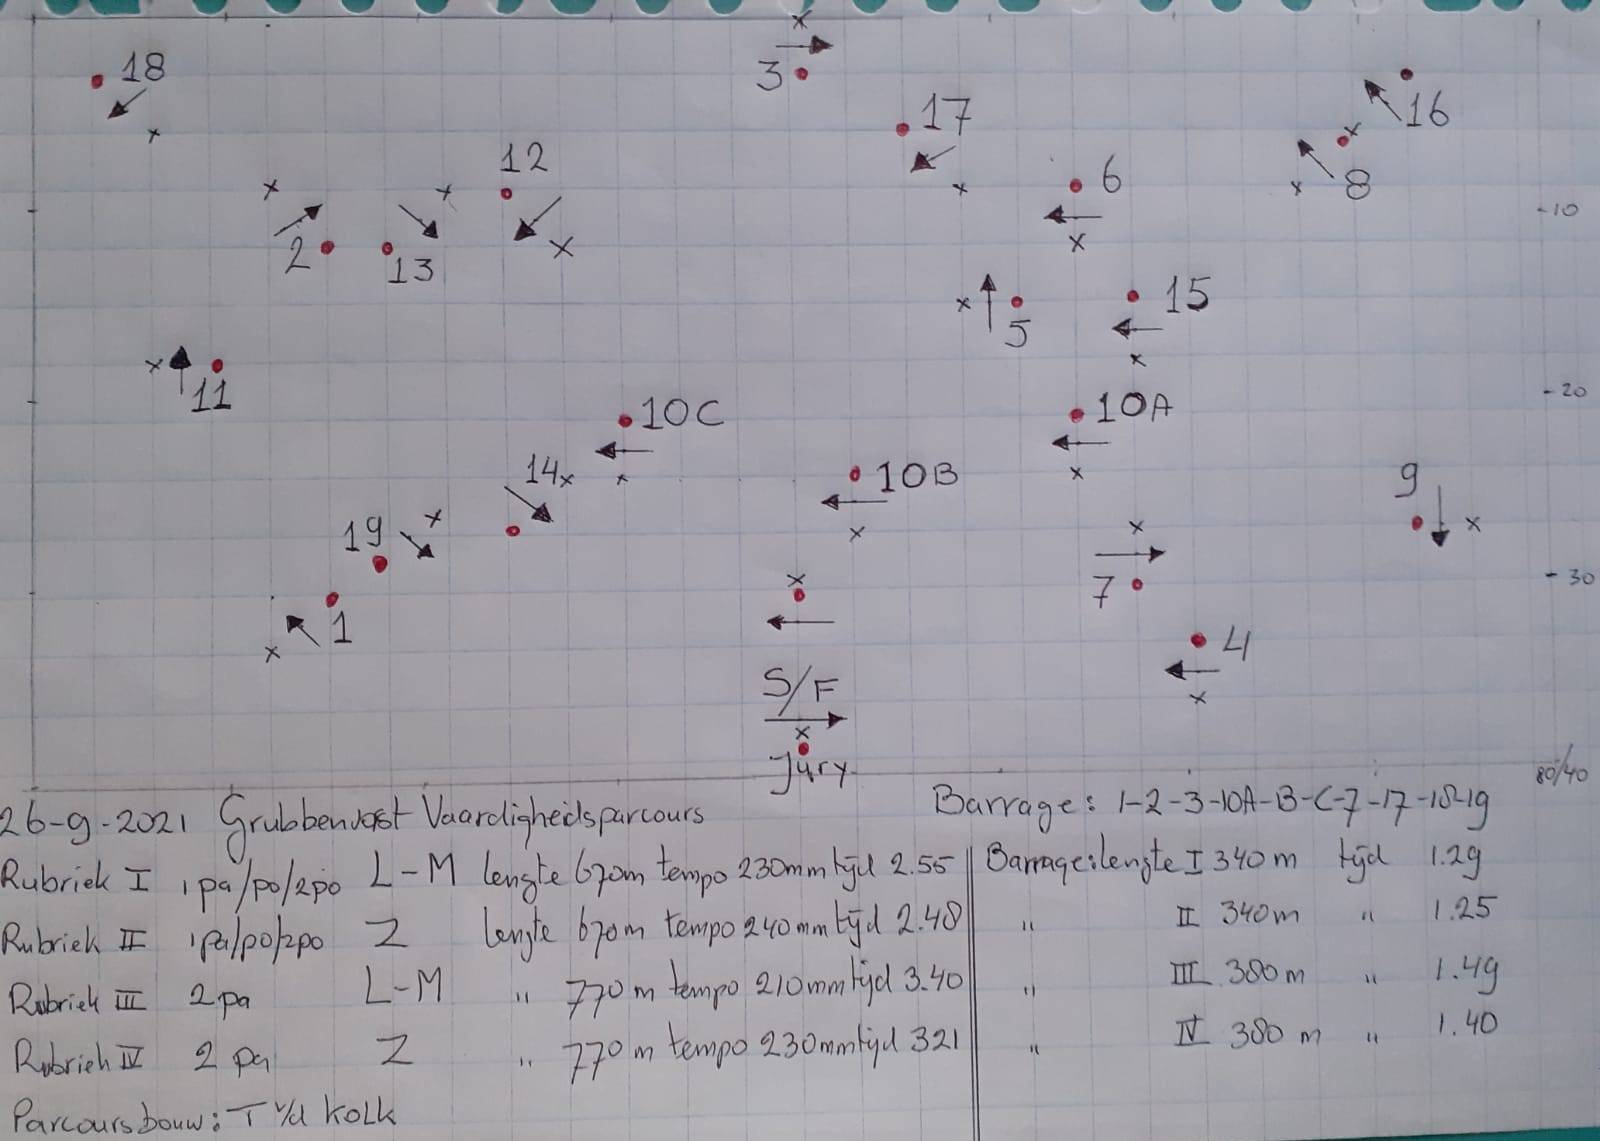 18
3
17
16
12
6
8
-10
2
13
5
15
11
10C
10A
-20
14
10B
9
19
7
-30
1
4
S/F
Jury
80/40
26-9-2021 Grubbenvorst Vaardigheidsparcours
Barrage: 1-2-3-10A-B-C-7-17-18-19
Rubriek I 1pa/po/2po L-M lengte 670m tempo 230mm tijd 2.55 Barrage: lengte I 340m tijd 1.29
Rubriek II 1pa/po/2po Z lengte 670m tempo 240mm tijd 2.48 " II 340m " 1.25
Rubriek III 2pa L-M " 770m tempo 210mm tijd 3.40 " III 380m " 1.49
Rubriek IV 2pa Z " 770m tempo 230mm tijd 321 " IV 380m " 1.40
Parcoursbouw: T v/d Kolk